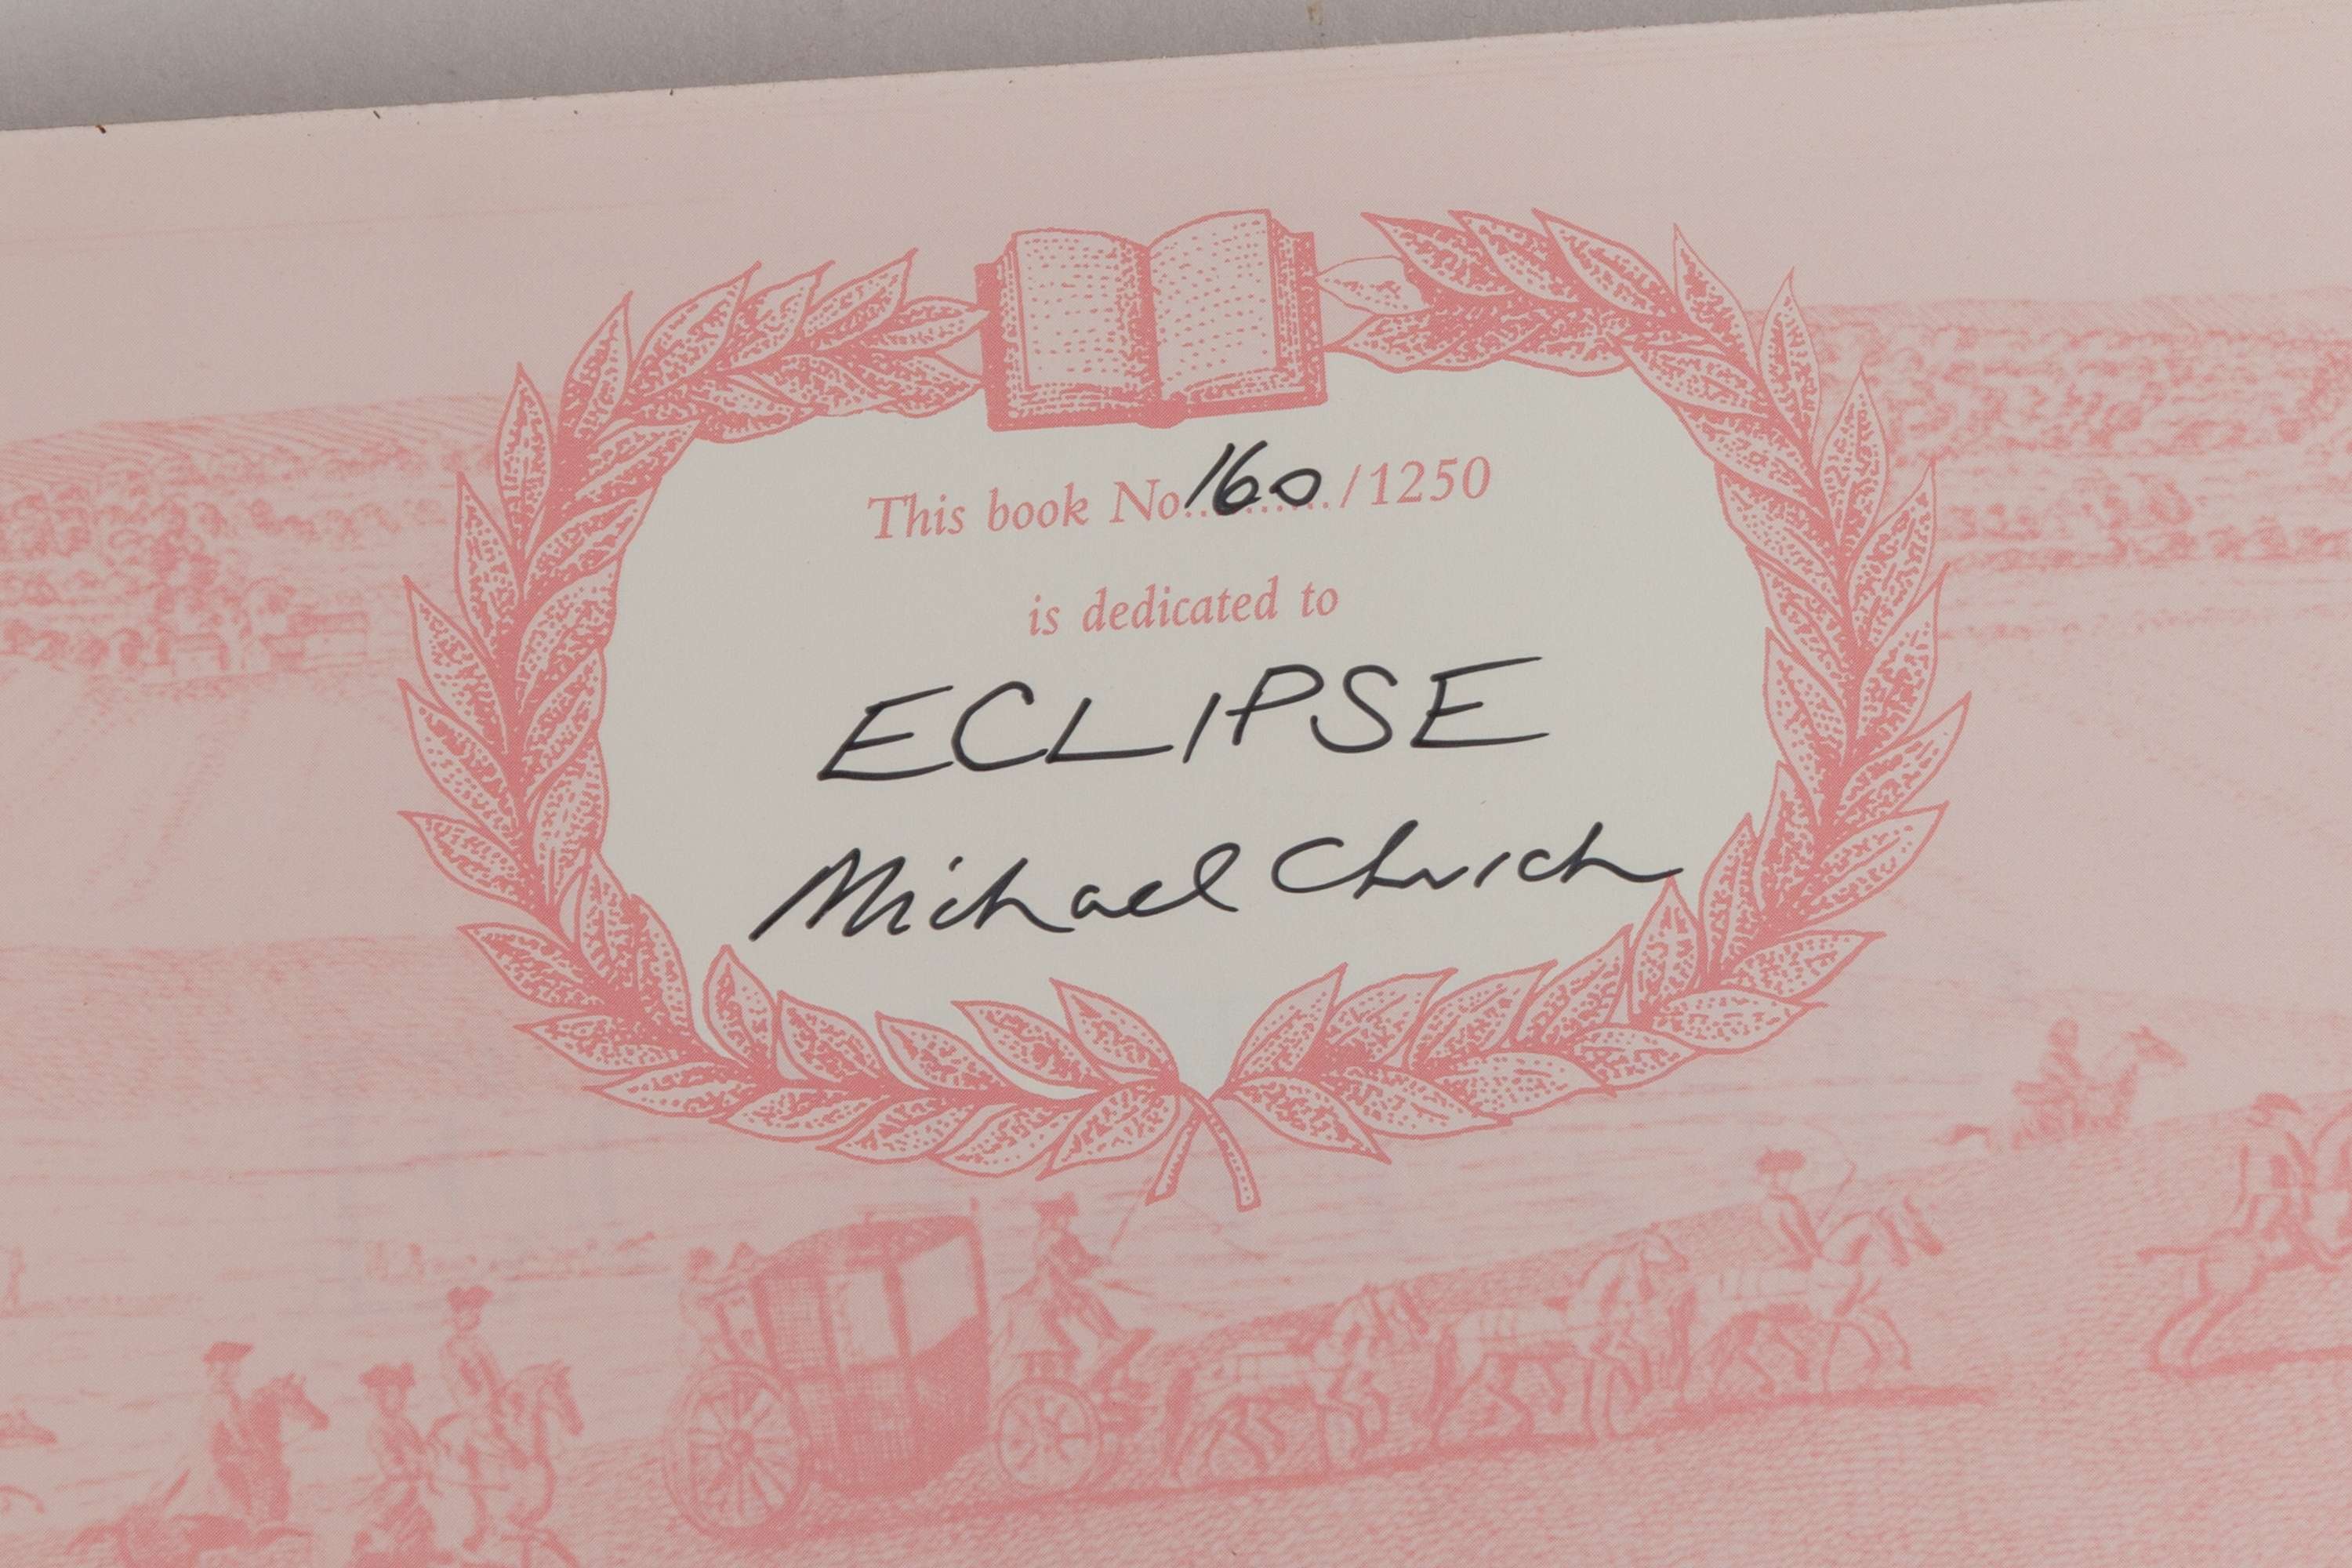 This book No. 160 /1250
is dedicated to
ECLIPSE
Michael Church